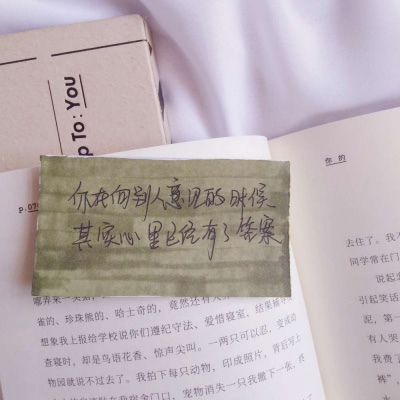 p To: You
你 的
P·07
你在问别人意见的时候
其实心里已经有了答案
雀的、珍珠熊的、哈士奇的，竟然还有
想象我上报给学校说你们遵纪守法、爱惜寝室，结果辅
查寝时，却是鸟语花香、惊声尖叫。一两只可以忍，变成动
物园就说不过去了。我拍下每只动物，印成照片，背后写上
宿舍门口，宠物消失一只我撕下一张，
去住了。我
同学常在门
说起
引起笑话
泥，第一
有人哭
我费
裤”，